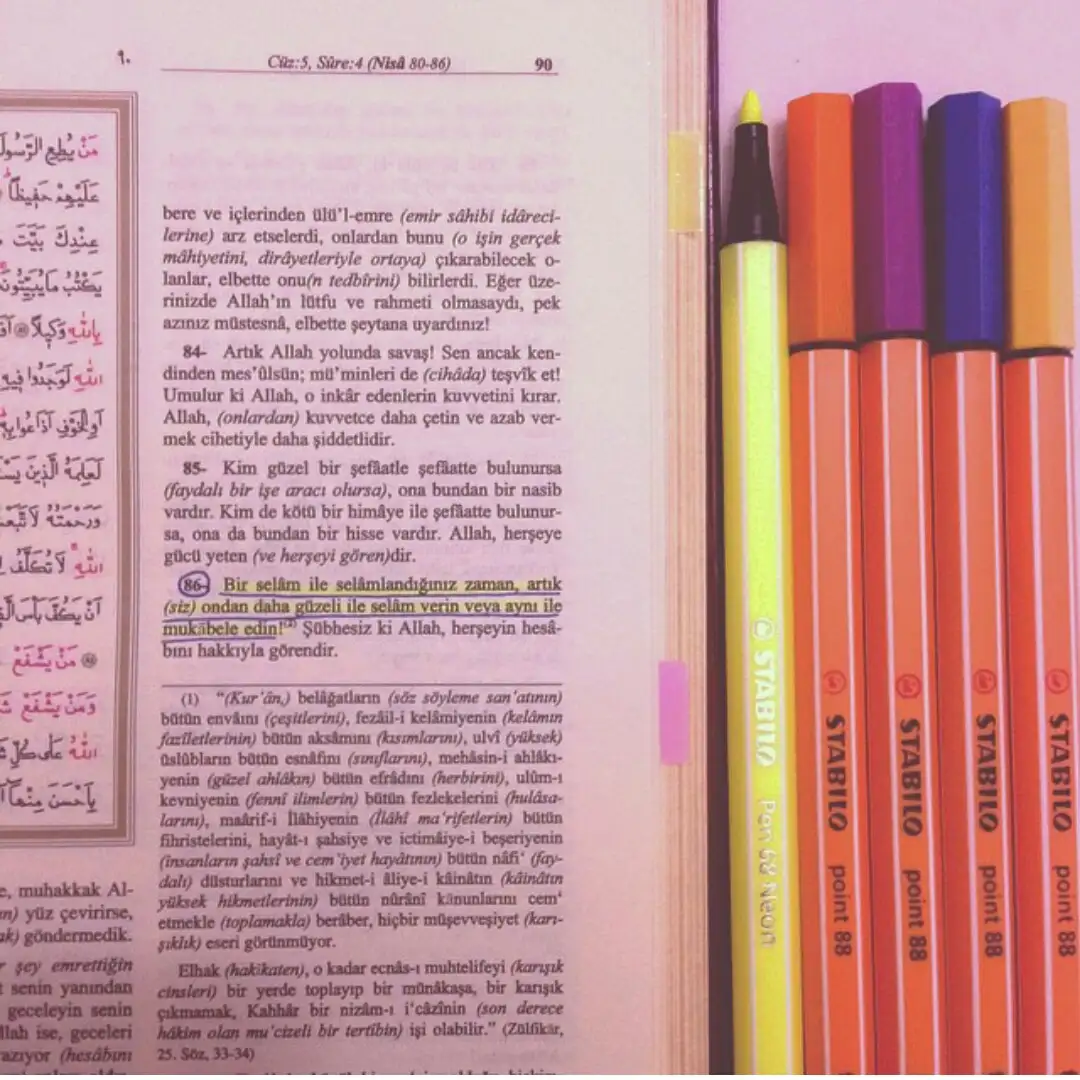 ٩٠
Cüz:5, Sûre:4 (Nisâ 80-86) 90
مَنْ يُطِعِ الرَّسُولَ
عَلَيْهِمْ حَفِيظًا
عِنْدِكَ بَيَّتَ
يَكْتُبُ مَا يُبَيِّتُونَ
بِاللّٰهِ وَكِيلًا
اللّٰهِ لَوَجَدُوا فِيهِ
أَوِ الْخَوْفِ أَذَاعُوا بِهِ
لَعَلِمَهُ الَّذِينَ
وَرَحْمَتُهُ لَاتَّبَعْتُمُ
اللّٰهِ لَا تُكَلَّفُ
أَنْ يَكُفَّ بَأْسَ
مَنْ يَشْفَعْ
وَمَنْ يَشْفَعْ
اللّٰهُ عَلٰى كُلِّ
بِأَحْسَنَ مِنْهَا
e, muhakkak Al-
yüz çevirirse,
göndermedik.
şey emrettiğin
senin yanından
geceleyin senin
llah ise, geceleri
azıyor (hesâbını
bere ve içlerinden ülü’l-emre (emir sâhibi idâreci-
lerine) arz etselerdi, onlardan bunu (o işin gerçek
mâhiyetini, dirâyetleriyle ortaya) çıkarabilecek o-
lanlar, elbette onu(n tedbîrini) bilirlerdi. Eğer üze-
rinizde Allah’ın lütfu ve rahmeti olmasaydı, pek
azınız müstesnâ, elbette şeytana uyardınız!
84- Artık Allah yolunda savaş! Sen ancak ken-
dinden mes’ûlsün; mü’minleri de (cihâda) teşvîk et!
Umulur ki Allah, o inkâr edenlerin kuvvetini kırar.
Allah, (onlardan) kuvvetce daha çetin ve azab ver-
mek cihetiyle daha şiddetlidir.
85- Kim güzel bir şefâatle şefâatte bulunursa
(faydalı bir işe aracı olursa), ona bundan bir nasib
vardır. Kim de kötü bir himâye ile şefâatte bulunur-
sa, ona da bundan bir hisse vardır. Allah, herşeye
gücü yeten (ve herşeyi gören)dir.
86- Bir selâm ile selâmlandığınız zaman, artık
(siz) ondan daha güzeli ile selâm verin veya aynı ile
mukābele edin!⁽²⁾ Şübhesiz ki Allah, herşeyin hesâ-
bını hakkıyla görendir.
(1) “(Kur’ân,) belâğatların (söz söyleme san’atının)
bütün envâını (çeşitlerini), fezâil-i kelâmiyenin (kelâmın
fazîletlerinin) bütün aksâmını (kısımlarını), ulvî (yüksek)
üslûbların bütün esnâfını (sınıflarını), mehâsin-i ahlâkı-
yenin (güzel ahlâkın) bütün efrâdını (herbirini), ulûm-ı
kevniyenin (fennî ilimlerin) bütün fezlekelerini (hulâsa-
larını), maârif-i İlâhiyenin (İlâhî ma‘rifetlerin) bütün
fihristelerini, hayât-ı şahsiye ve ictimâiye-i beşeriyenin
(insanların şahsî ve cem‘iyet hayâtının) bütün nâfi‘ (fay-
dalı) düsturlarını ve hikmet-i âliye-i kâinâtın (kâinâtın
yüksek hikmetlerinin) bütün nûrânî kānunlarını cem‘
etmekle (toplamakla) berâber, hiçbir müşevveşiyet (karı-
şıklık) eseri görünmüyor.
Elhak (hakîkaten), o kadar ecnâs-ı muhtelifeyi (karışık
cinsleri) bir yerde toplayıp bir münâkaşa, bir karışık
çıkmamak, Kahhâr bir nizâm-ı i‘câzînin (son derece
hâkim olan mu‘cizeli bir tertîbin) işi olabilir.” (Zülfikār,
25. Söz, 33-34)
STABILO Pen 68 Neon
STABILO point 88
STABILO point 88
STABILO point 88
STABILO point 88